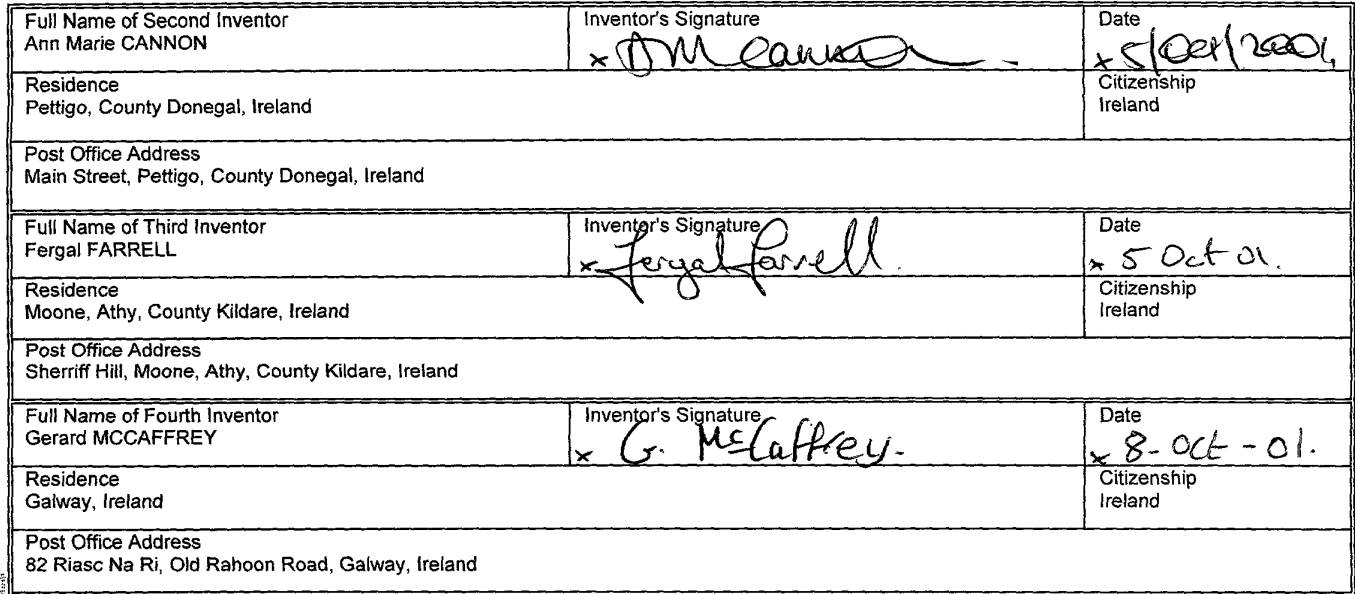 Full Name of Second Inventor
Ann Marie CANNON
Inventor's Signature
x AM Cannon
Date
x 5/Oct/2001
Residence
Pettigo, County Donegal, Ireland
Citizenship
Ireland
Post Office Address
Main Street, Pettigo, County Donegal, Ireland
Full Name of Third Inventor
Fergal FARRELL
Inventor's Signature
x Fergal Farrell.
Date
x 5 Oct 01.
Residence
Moone, Athy, County Kildare, Ireland
Citizenship
Ireland
Post Office Address
Sherriff Hill, Moone, Athy, County Kildare, Ireland
Full Name of Fourth Inventor
Gerard MCCAFFREY
Inventor's Signature
x G. McCaffrey.
Date
x 8-Oct-01.
Residence
Galway, Ireland
Citizenship
Ireland
Post Office Address
82 Riasc Na Ri, Old Rahoon Road, Galway, Ireland